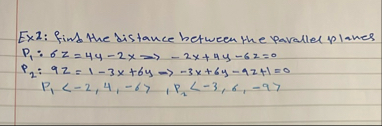 Ex2: find the distance between the parallel planes
P₁: 6z=4y-2x => -2x+4y-6z=0
P₂: 9z=1-3x+6y => -3x+6y-9z+1=0
P₁ <-2,4,-6> , P₂ <-3,6,-9>